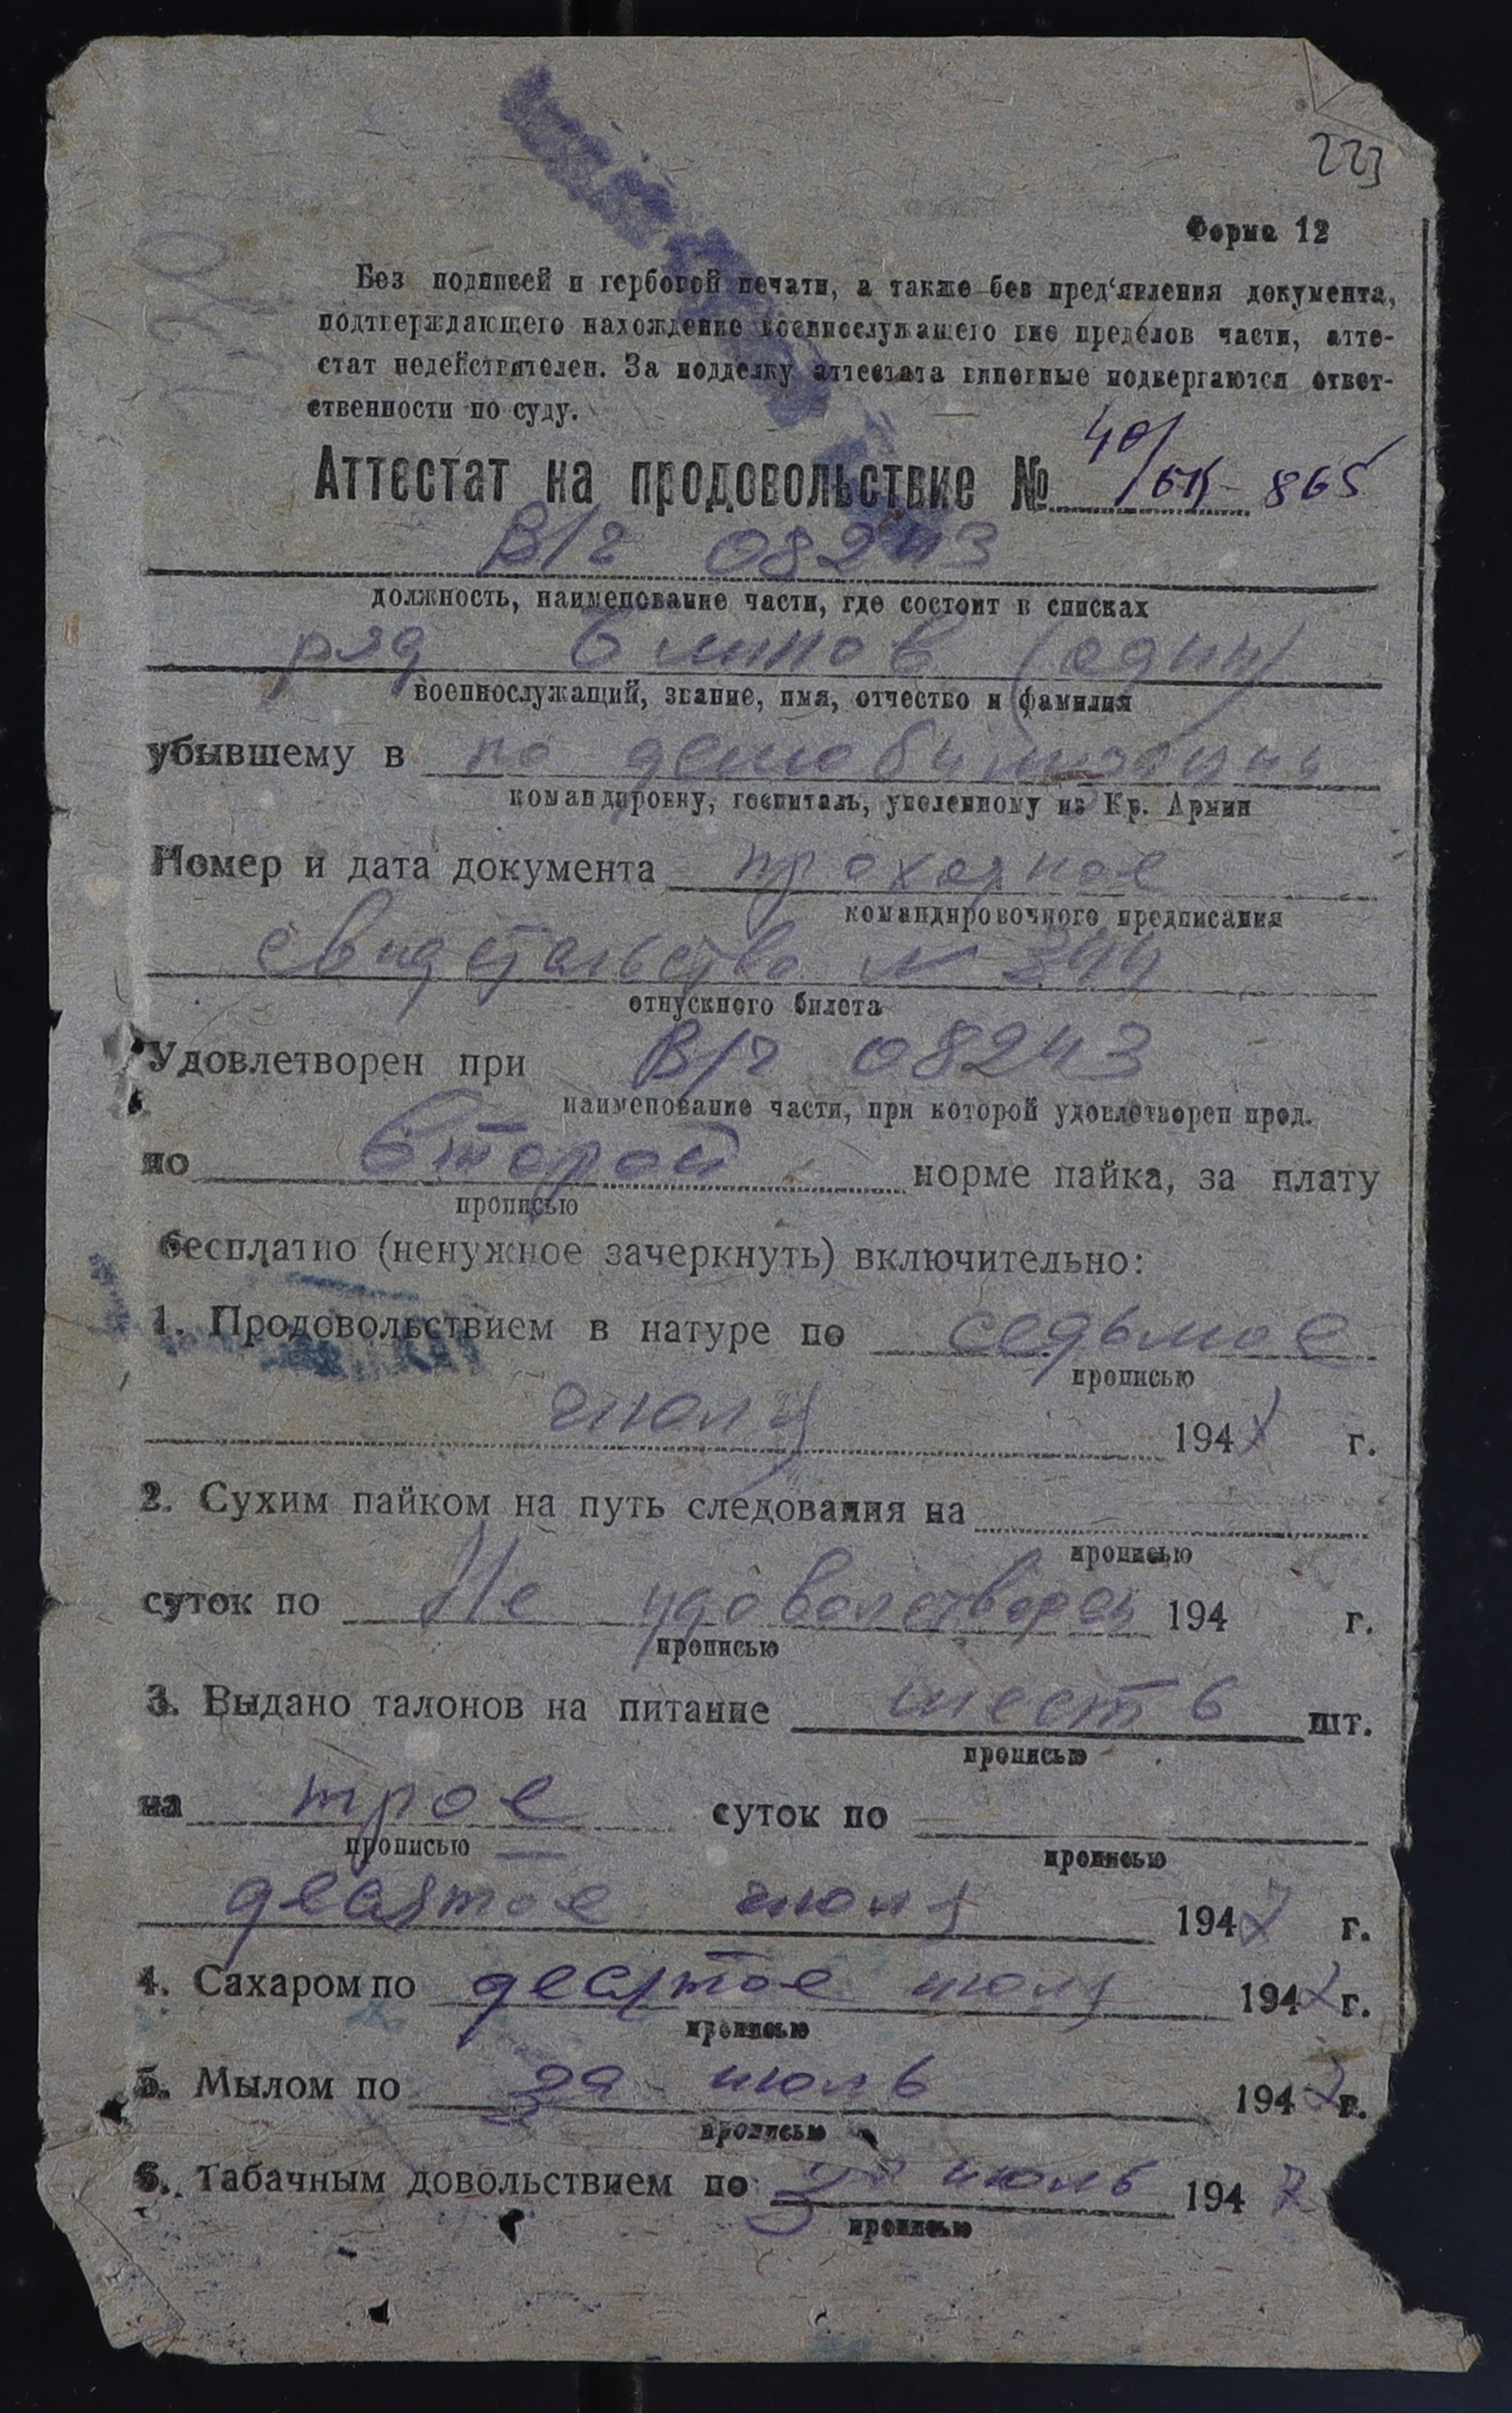 223
Форма 12
Без подписей и гербовой печати, а также без пред‘явления документа,
подтверждающего нахождение военнослужащего вне пределов части, атте-
стат недействителен. За подделку аттестата виновные подвергаются ответ-
ственности по суду.
Аттестат на продовольствие № 40/БК-865
В/ч 08243
должность, наименование части, где состоит в списках
ряд Блинов (один)
военнослужащий, звание, имя, отчество и фамилия
убывшему в по демобилизации
командировку, госпиталь, уволенному из Кр. Армии
Номер и дата документа проходное
командировочного предписания
свидетельство № 344
отпускного билета
Удовлетворен при В/ч 08243
наименование части, при которой удовлетворен прод.
по второй норме пайка, за плату
прописью
бесплатно (ненужное зачеркнуть) включительно:
1. Продовольствием в натуре по седьмое
прописью
июля 1947 г.
2. Сухим пайком на путь следования на
прописью
суток по Не удовлетворен 194 г.
прописью
3. Выдано талонов на питание шесть шт.
прописью
на трое суток по
прописью прописью
десятое июля 1947 г.
4. Сахаром по десятое июля 1947 г.
прописью
5. Мылом по за июль 1947 г.
прописью
6. Табачным довольствием по за июль 1947
прописью